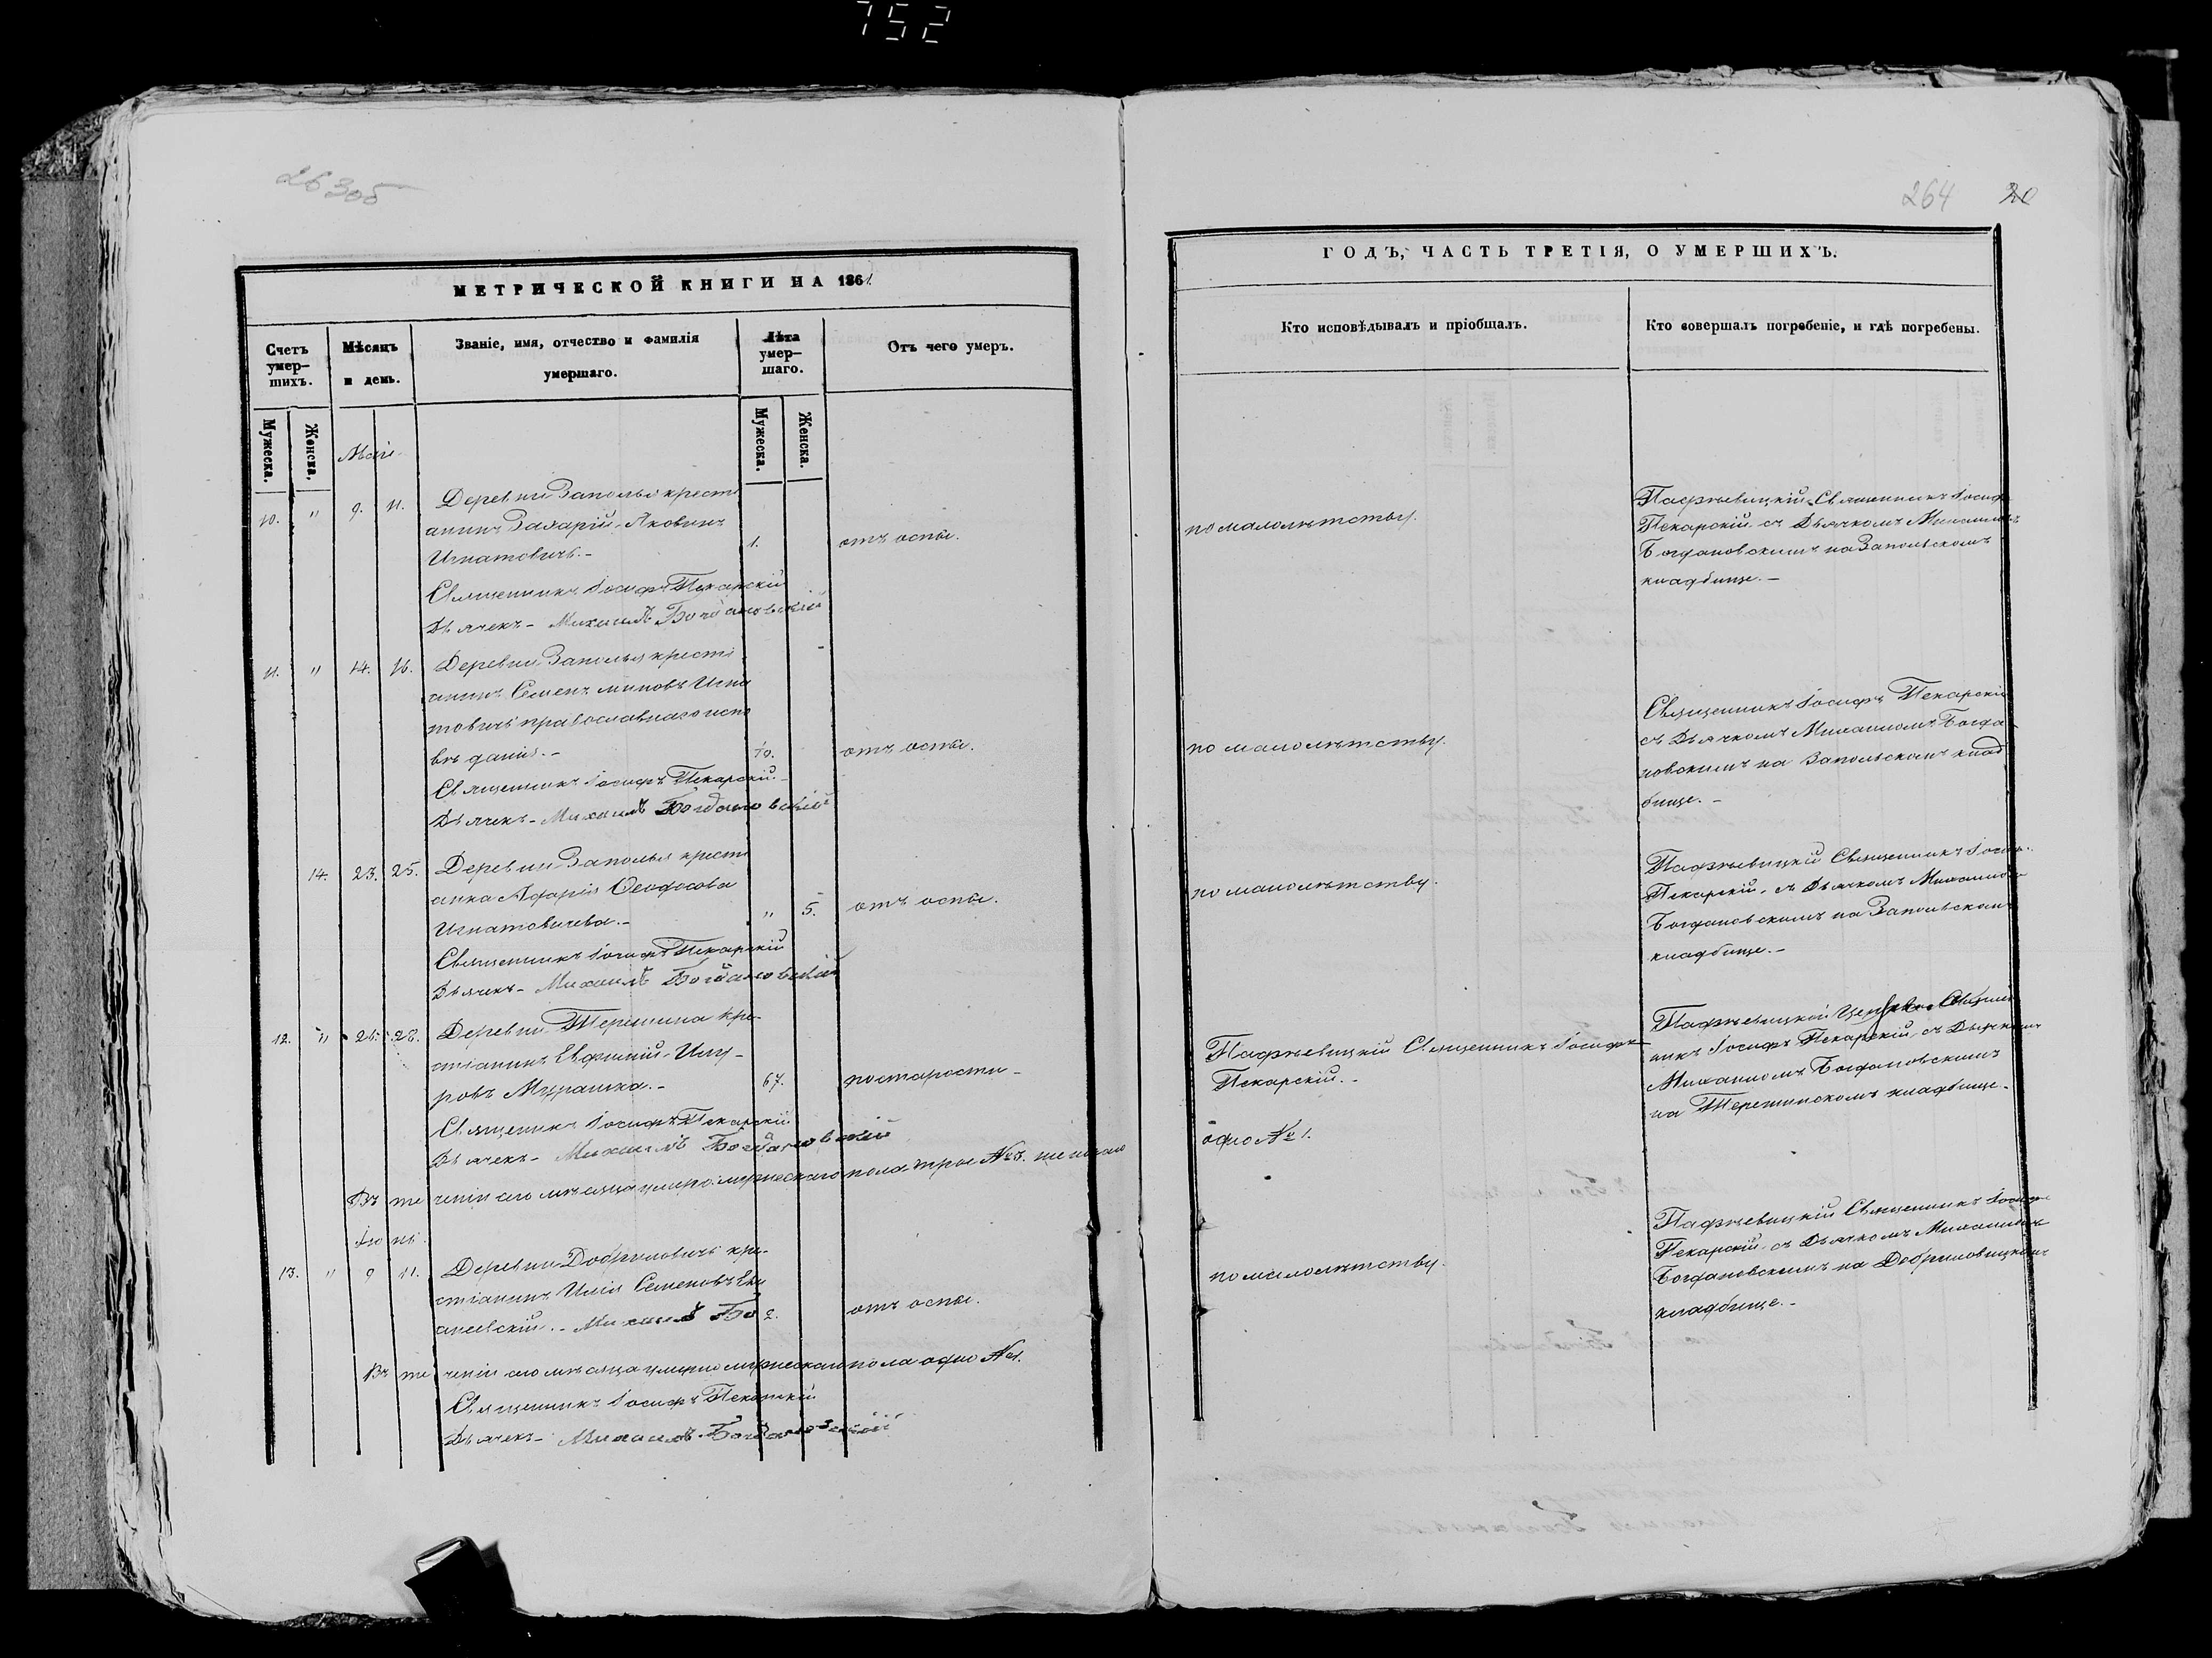 752
263об
264 20
МЕТРИЧЕСКОЙ КНИГИ НА 1861
ГОДЪ, ЧАСТЬ ТРЕТІЯ, О УМЕРШИХЪ.
Счетъ умер-шихъ.
Мѣсяцъ и день.
Званіе, имя, отчество и фамилія умершаго.
Лѣта умер-шаго.
Отъ чего умеръ.
Кто исповѣдывалъ и пріобщалъ.
Кто совершалъ погребеніе, и гдѣ погребены.
Мужеска.
Женска.
Мужеска.
Женска.
Маій
10. " 9. 11.
Деревни Заполья крестя
анинъ Захарій Яковинъ
Игнатовичъ.-
1.
отъ оспы.
по малолѣтству.
Священникъ Іосифъ
Пекарскій съ Дьячкомъ Михаиломъ
Богдановскимъ на Запольскомъ
кладбище.-
Священникъ Іосифъ Пекарскій
Дьячекъ- Михаилъ Богдановскій
11. " 14. 16.
Деревни Заполья крестя
анинъ Семенъ Миновъ Игна
товичъ православнаго испо
вѣданія.-
10.
отъ оспы.
по малолѣтству.
Священникъ Іосифъ Пекарскій
съ Дьячкомъ Михаиломъ Богда
новскимъ на Запольскомъ клад
бище.-
Священникъ Іосифъ Пекарскій
Дьячекъ- Михаилъ Богдановскій
14. 23. 25.
Деревни Заполья крестя
анка Ѳеодосова
Игнатовичева.-
" 5.
отъ оспы.
по малолѣтству.
Священникъ Іосифъ
Пекарскій съ Дьячкомъ Михаиломъ
Богдановскимъ на Запольскомъ
кладбище.-
Священникъ Іосифъ Пекарскій
Дьячекъ- Михаилъ Богдановскій
12. " 26. 28.
Деревни Терешина кре-
стіанинъ Евфимій
Мурашка.-
67.
по старости-
Священникъ Іосифъ
Пекарскій.-
никъ Іосифъ Пекарскій съ Дьячкомъ
Михаиломъ Богдановскимъ
на Терешинскомъ кладбище-
Священникъ Іосифъ Пекарскій
Дьячекъ- Михаилъ Богдановскій
Въ теченіи сего мѣсяца умерло мужескаго пола трое №3. женскаго
одно №1.
Іюнь
13. " 9 11.
Деревни Добриловичъ кре-
стіанинъ Илія Семеновъ
2.
отъ оспы.
по малолѣтству.
Священникъ Іосифъ
Пекарскій съ Дьячкомъ Михаиломъ
Богдановскимъ на Добриловицкомъ
кладбище.-
Въ теченіи сего мѣсяца умерло мужескаго пола одно №1.
Священникъ Іосифъ Пекарскій
Дьячекъ- Михаилъ Богдановскій